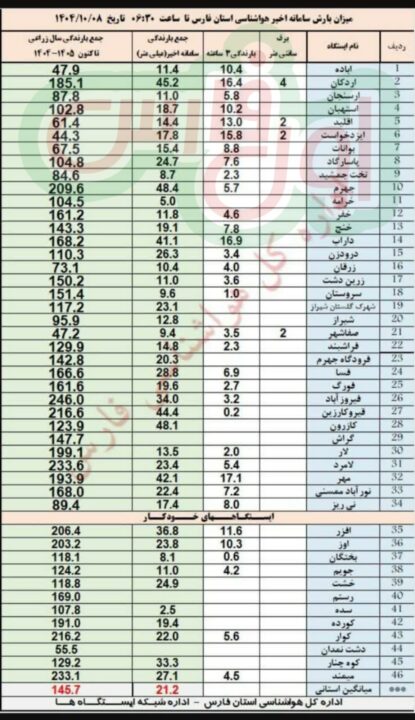 میزان بارش سامانه اخیر هواشناسی استان فارس تا ساعت ۰۶:۳۰ تاریخ ۱۴۰۴/۱۰/۰۸
ردیف نام ایستگاه برف سانتی متر بارندگی۳ ساعته جمع بارندگی سامانه اخیر(میلی متر) جمع بارندگی سال زراعی تاکنون ۱۴۰۵-۱۴۰۴
1 اباده 10.4 11.4 47.9
2 اردکان 4 16.4 45.2 185.1
3 ارسنجان 5.8 11.0 87.8
4 استهبان 10.2 18.7 102.8
5 اقلید 2 13.0 14.4 61.4
6 ایزدخواست 2 15.8 17.8 44.3
7 بوانات 8.8 15.4 67.5
8 پاسارگاد 7.6 24.7 104.8
9 تخت جمشید 2.3 8.7 84.6
10 جهرم 5.7 48.4 209.6
11 خرامه 5.0 104.5
12 خفر 4.6 11.8 161.2
13 خنج 7.8 19.1 143.3
14 داراب 16.9 41.1 168.2
15 درودزن 3.4 26.3 110.3
16 زرقان 4.0 10.4 73.1
17 زرین دشت 3.6 11.0 150.2
18 سروستان 1.0 9.6 151.4
19 شهرک گلستان شیراز 23.1 117.2
20 شیراز 12.8 95.9
21 صفاشهر 2 3.5 9.4 47.2
22 فراشبند 2.3 14.8 129.9
23 فرودگاه جهرم 20.3 142.8
24 فسا 6.9 28.8 166.6
25 فورگ 2.7 19.6 161.6
26 فیروزآباد 3.2 34.0 246.0
27 قیروکارزین 0.2 44.4 216.6
28 کازرون 48.1 123.9
29 گراش 147.7
30 لار 2.0 13.5 199.1
31 لامرد 5.4 23.4 233.6
32 مهر 17.1 42.1 193.9
33 نورآباد ممسنی 7.2 22.4 168.0
34 نی ریز 8.0 17.4 89.4
ایستگاههای خودکار
35 افزر 11.6 36.8 206.4
36 اوز 10.3 23.8 203.2
37 بختگان 0.6 8.1 118.1
38 جویم 4.2 11.0 124.2
39 خشت 24.9 118.8
40 رستم 169.0
41 سده 2.5 107.8
42 کورده 19.4 191.0
43 کوار 5.6 22.0 216.2
44 دشت نمدان 55.5
45 کوه چنار 33.3 129.2
46 میمند 4.5 27.1 233.1
*** میانگین استانی 21.2 145.7
اداره کل هواشناسی استان فارس - اداره شبکه ایستگاه ها
اداره کل هواشناسی فارس